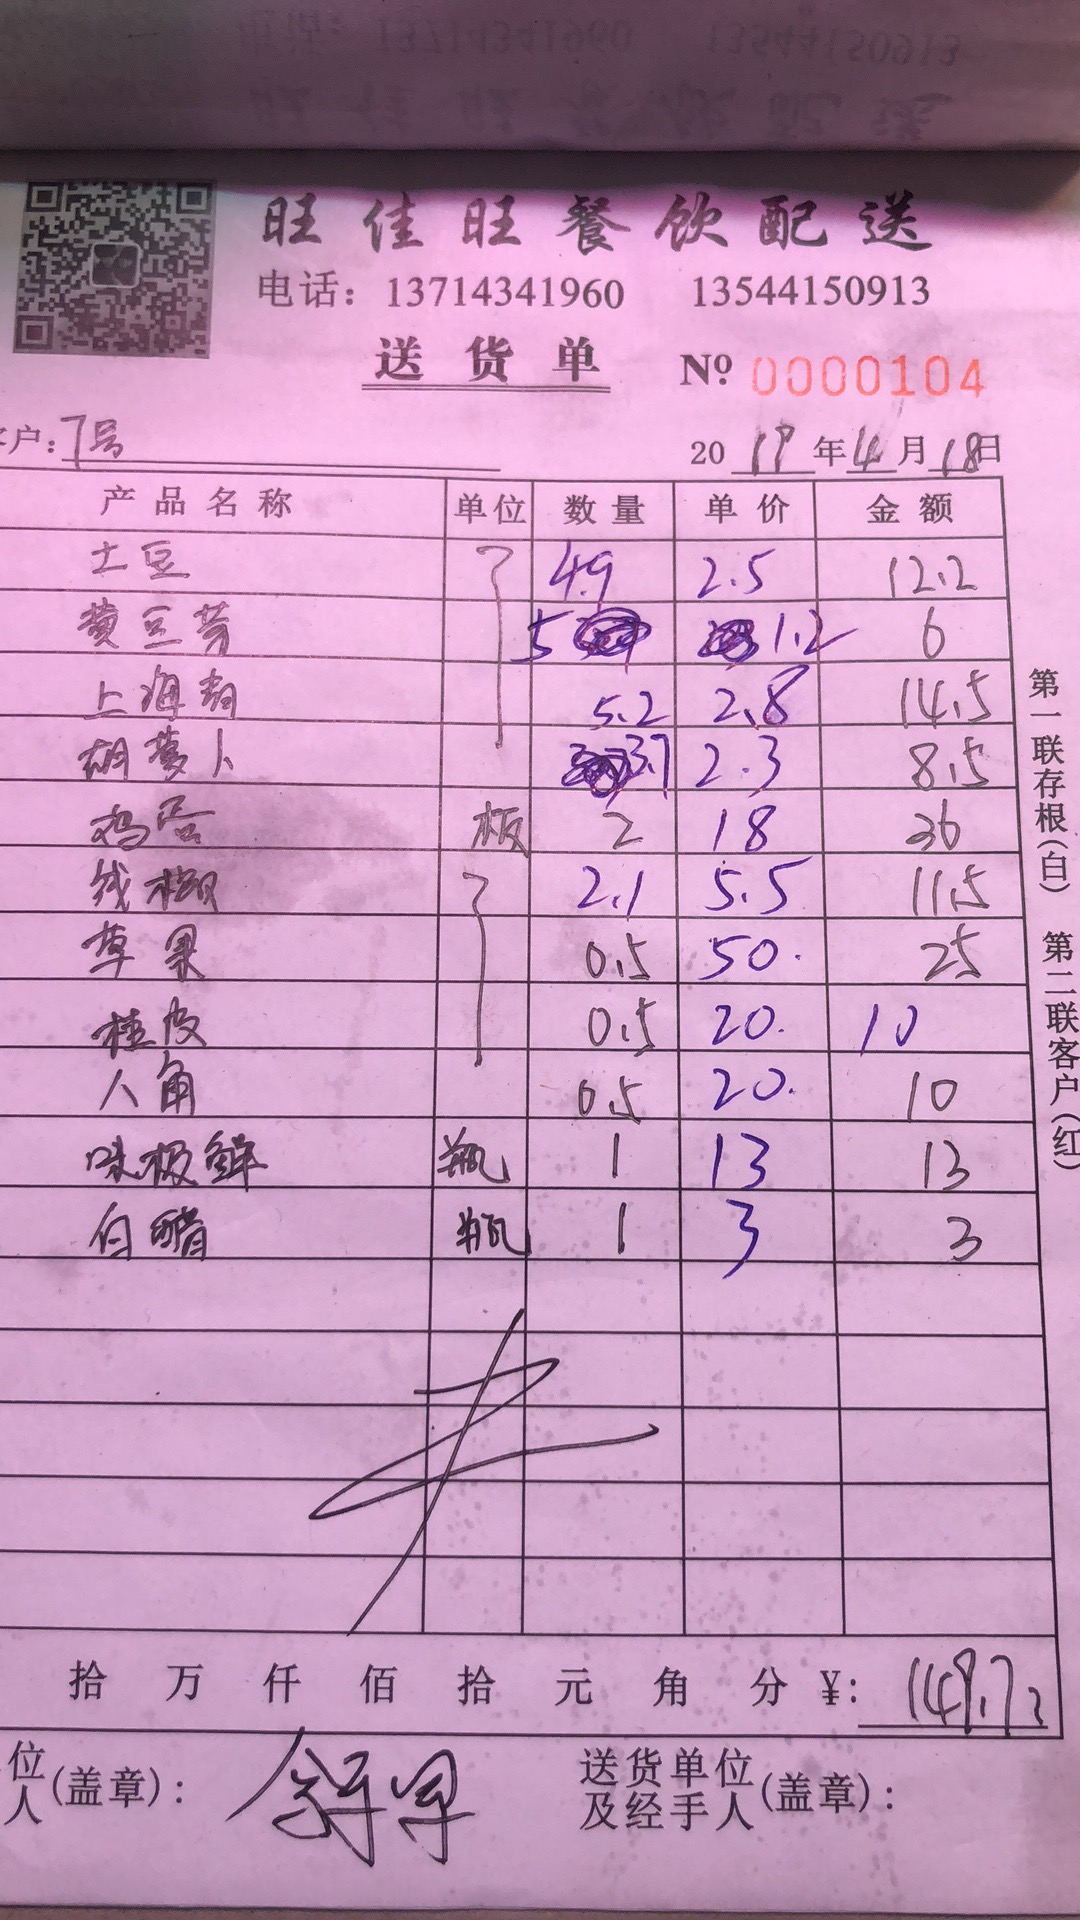 旺佳旺餐饮配送
电话：13714341960 13544150913
送货单 Nº 0000104
客户：7号 2019年4月18日
产品名称 单位 数量 单价 金额
土豆 4.9 2.5 12.2
黄豆芽 5 1.2 6
上海青 5.2 2.8 14.5
胡萝卜 3.7 2.3 8.5
鸡蛋 板 2 18 36
线椒 2.1 5.5 11.5
草果 0.5 50. 25
桂皮 0.5 20. 10
八角 0.5 20. 10
味极鲜 瓶 1 13 13
白醋 瓶 1 3 3
第一联存根(白) 第二联客户(红)
拾 万 仟 佰 拾 元 角 分 ¥: 149.7
位 送货单位
人 (盖章)： 及经手人 (盖章)：